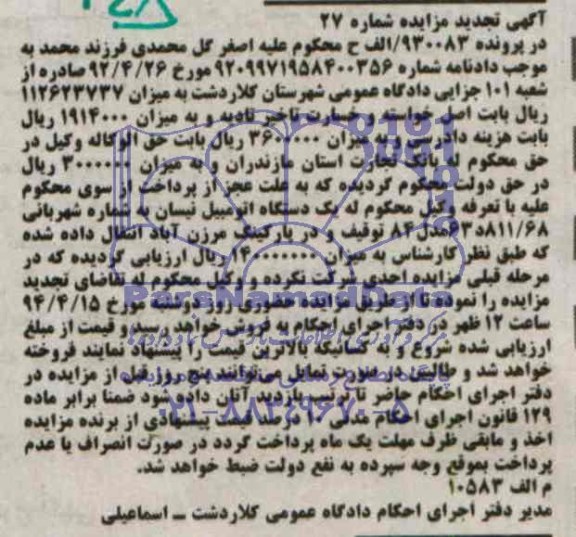 آگهی تجدید مزایده شماره ۲۷
در پرونده ۹۳۰۰۸۳/الف ح محکوم علیه اصغر گل محمدی فرزند محمد به
موجب دادنامه شماره ۹۲۰۹۹۷۱۹۵۸۴۰۰۳۵۶ مورخ ۹۲/۴/۲۶ صادره از
شعبه ۱۰۱ جزایی دادگاه عمومی شهرستان کلاردشت به میزان ۱۱۲۶۲۳۷۳۷
ریال بابت اصل خواسته و خسارت تاخیر تادیه و به میزان ۱۹۱۴۰۰۰ ریال
بابت هزینه دادرسی و به میزان ریال بابت حق الوکاله وکیل در
حق محکوم له بانک تجارت استان مازندران و به میزان ۳۰۰۰۰۰۰ ریال
در حق دولت محکوم گردیده که به علت عجز از پرداخت از سوی محکوم
علیه با تعرفه وکیل محکوم له یک دستگاه اتومبیل نیسان به شماره شهربانی
مدل ۸۲ توقیف و در پارکینگ مرزن آباد انتقال داده شده
که طبق نظر کارشناس به میزان ریال ارزیابی گردیده که در
مرحله قبلی مزایده احدی شرکت نکرده و وکیل محکوم له تقاضای تجدید
مزایده را نموده تا از طریق مزایده حضوری روز دوشنبه مورخ ۹۴/۴/۱۵
ساعت ۱۲ ظهر در دفتر اجرای احکام به فروش خواهد رسید و قیمت از مبلغ
ارزیابی شده شروع و به کسانیکه بالاترین قیمت را پیشنهاد نمایند فروخته
خواهد شد و طالبین در صورت تمایل می‌توانند پنج روز قبل از مزایده در
دفتر اجرای احکام حاضر تا ترتیب بازدید آنان داده شود ضمنا برابر ماده
۱۲۹ قانون اجرای احکام مدنی ۱۰ درصد قیمت پیشنهادی از برنده مزایده
اخذ و مابقی ظرف مهلت یک ماه پرداخت گردد در صورت انصراف یا عدم
پرداخت بموقع وجه سپرده به نفع دولت ضبط خواهد شد.
م الف ۱۰۵۸۳
مدیر دفتر اجرای احکام دادگاه عمومی کلاردشت ــ اسماعیلی
ParsNamadData
۰۲۱-۸۸۳۴۹۶۷۰-۵